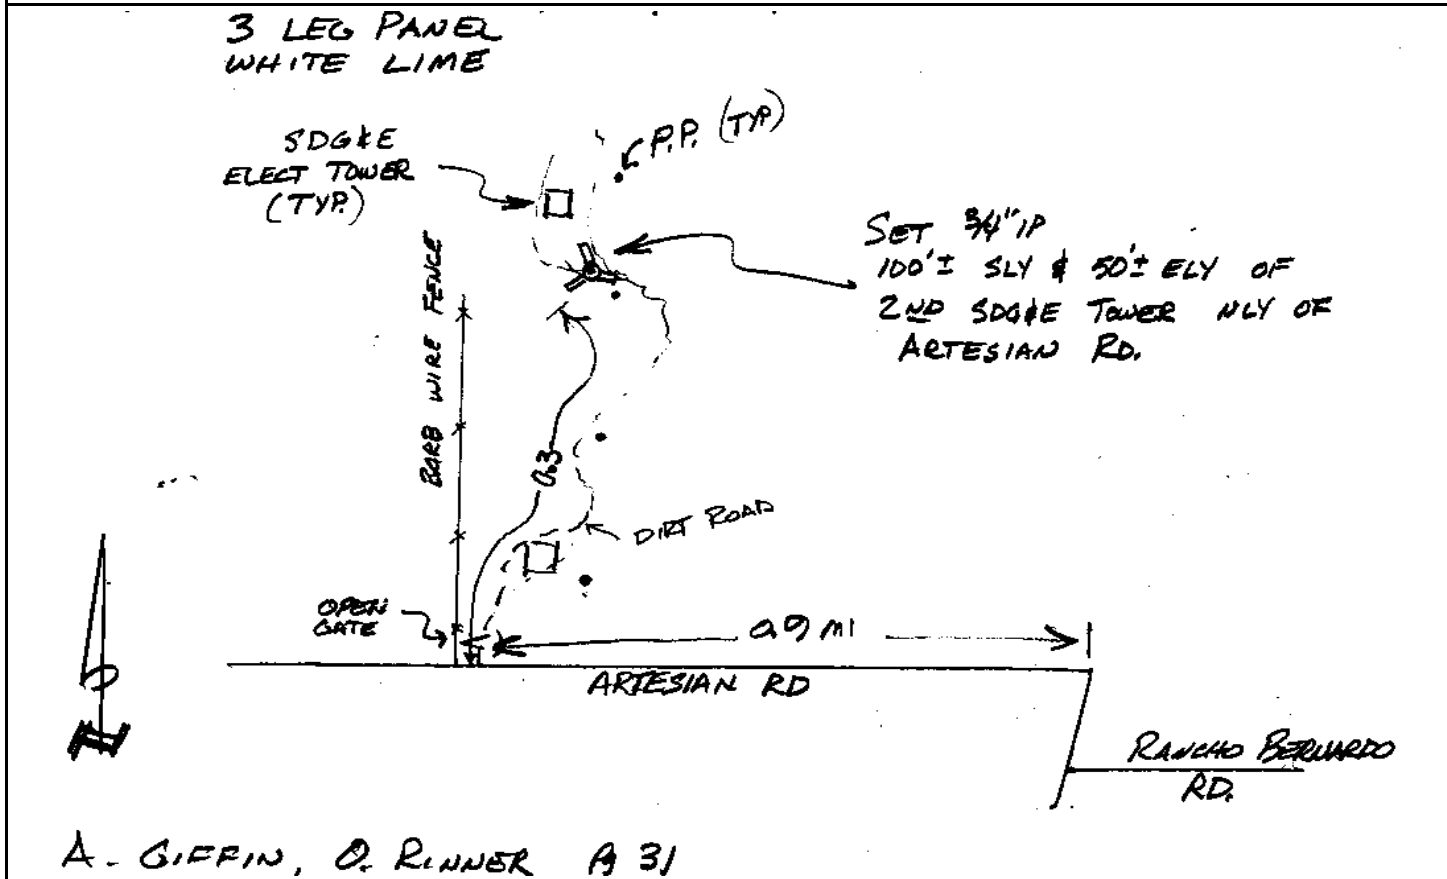 3 LEG PANEL
WHITE LIME
SDG&E
ELECT TOWER
(TYP.)
P.P. (TYP)
SET 3/4" IP
100'± SLY & 50'± ELY OF
2ND SDG&E TOWER NLY OF
ARTESIAN RD.
BARB WIRE FENCE
0.3
DIRT ROAD
OPEN
GATE
0.9 MI
ARTESIAN RD
N
RANCHO BERNARDO
RD.
A. GIFFIN, O. RINNER Pg 31